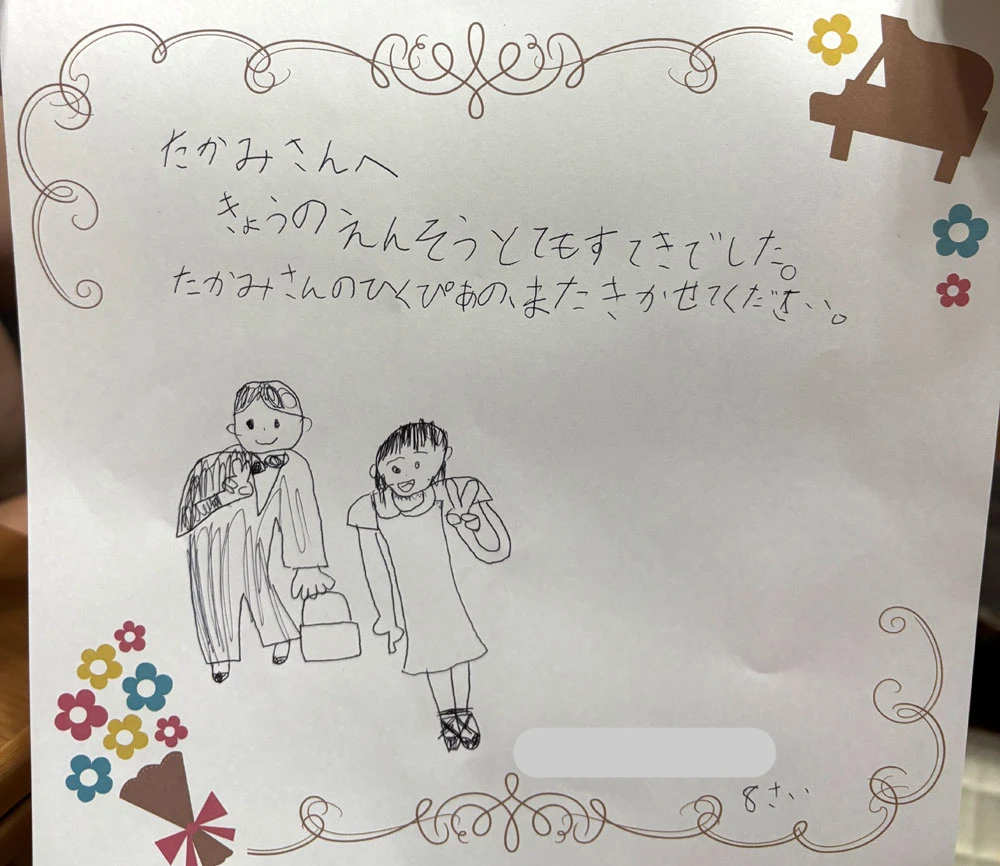 たかみさんへ
きょうのえんそうとてもすてきでした。
たかみさんのひくぴあの、またきかせてください。
8さい